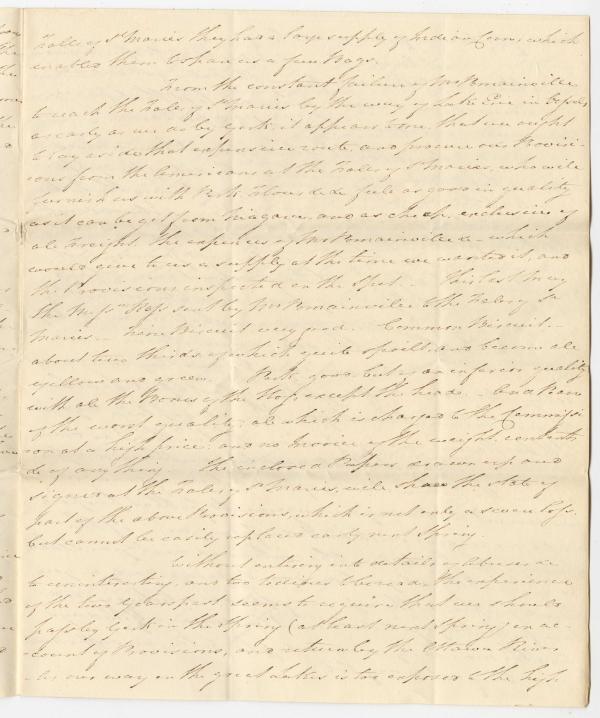 Falls of St Maries they had a large supply of Indian Corn, which
enabled them to spare us a few Bags.
From the constant failure of Mr Romainville
to reach the Falls of St Maries by the way of Lake Erie in Vessels,
as early as we do by York, it appears to me, that we ought
to lay aside that expensive route, and procure our Provisi-
ons from the Americans at the Falls of St Maries, who will
furnish us with Pork, Flour &c &c full as good in quality
as it can be got from Niagara, and as cheap, exclusive of
all Freight, the expences of Mr Romainville &c - which
would give to us a supply at the time we wanted it, and
the Provisions inspected on the spot. - This last May
the Messrs sent by Mr Romainville to the Falls of St
Maries - nine Biscuit very good. Common Biscuit -
about two thirds of which quite spoilt, and become all
yellow and green. Pork, good, but of an inferior quality
with all the Bones of the Hog except the head, - and Rum
of the worst quality; all which is charged to the Commissi
on at a high price: and no Invoice of the weight, contents
&c of any thing. The inclosed Papers drawn up and
signed at the Falls of St Maries, will shew the state of
part of the above Provisions, which is not only a severe loss,
but cannot be easily replaced early next Spring.
Without entering into details of Abuses &c
to uninteresting, and too tedious to be read, the experience
of the two Years past seems to require that we should
pass by York in the Spring (at least next Spring) on ac-
count of Provisions, and return by the Ottawa River
as our way on the great Lakes is too exposed to the high